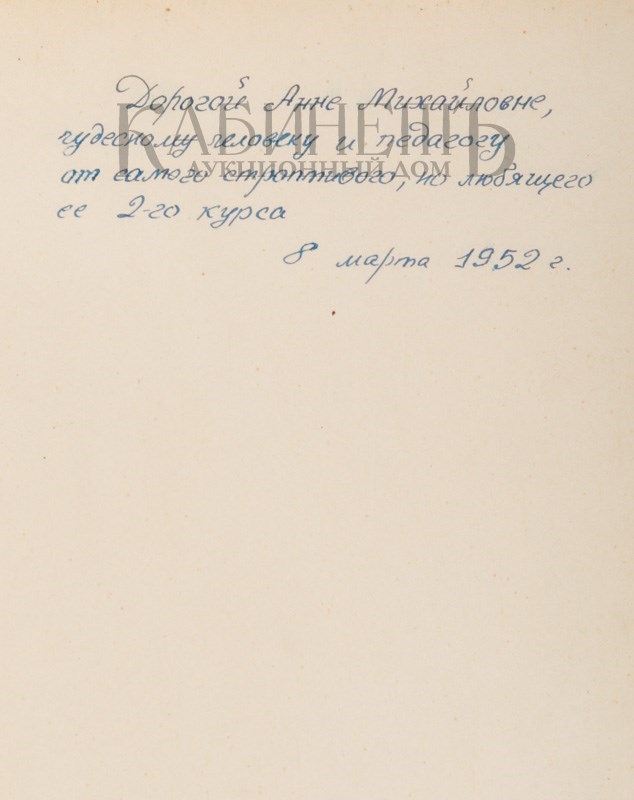 Дорогой Анне Михайловне,
чудесному человеку и педагогу
от самого строптивого, но любящего
ее 2-го курса
8 марта 1952 г.
КАБИНЕТЪ
АУКЦИОННЫЙ ДОМ